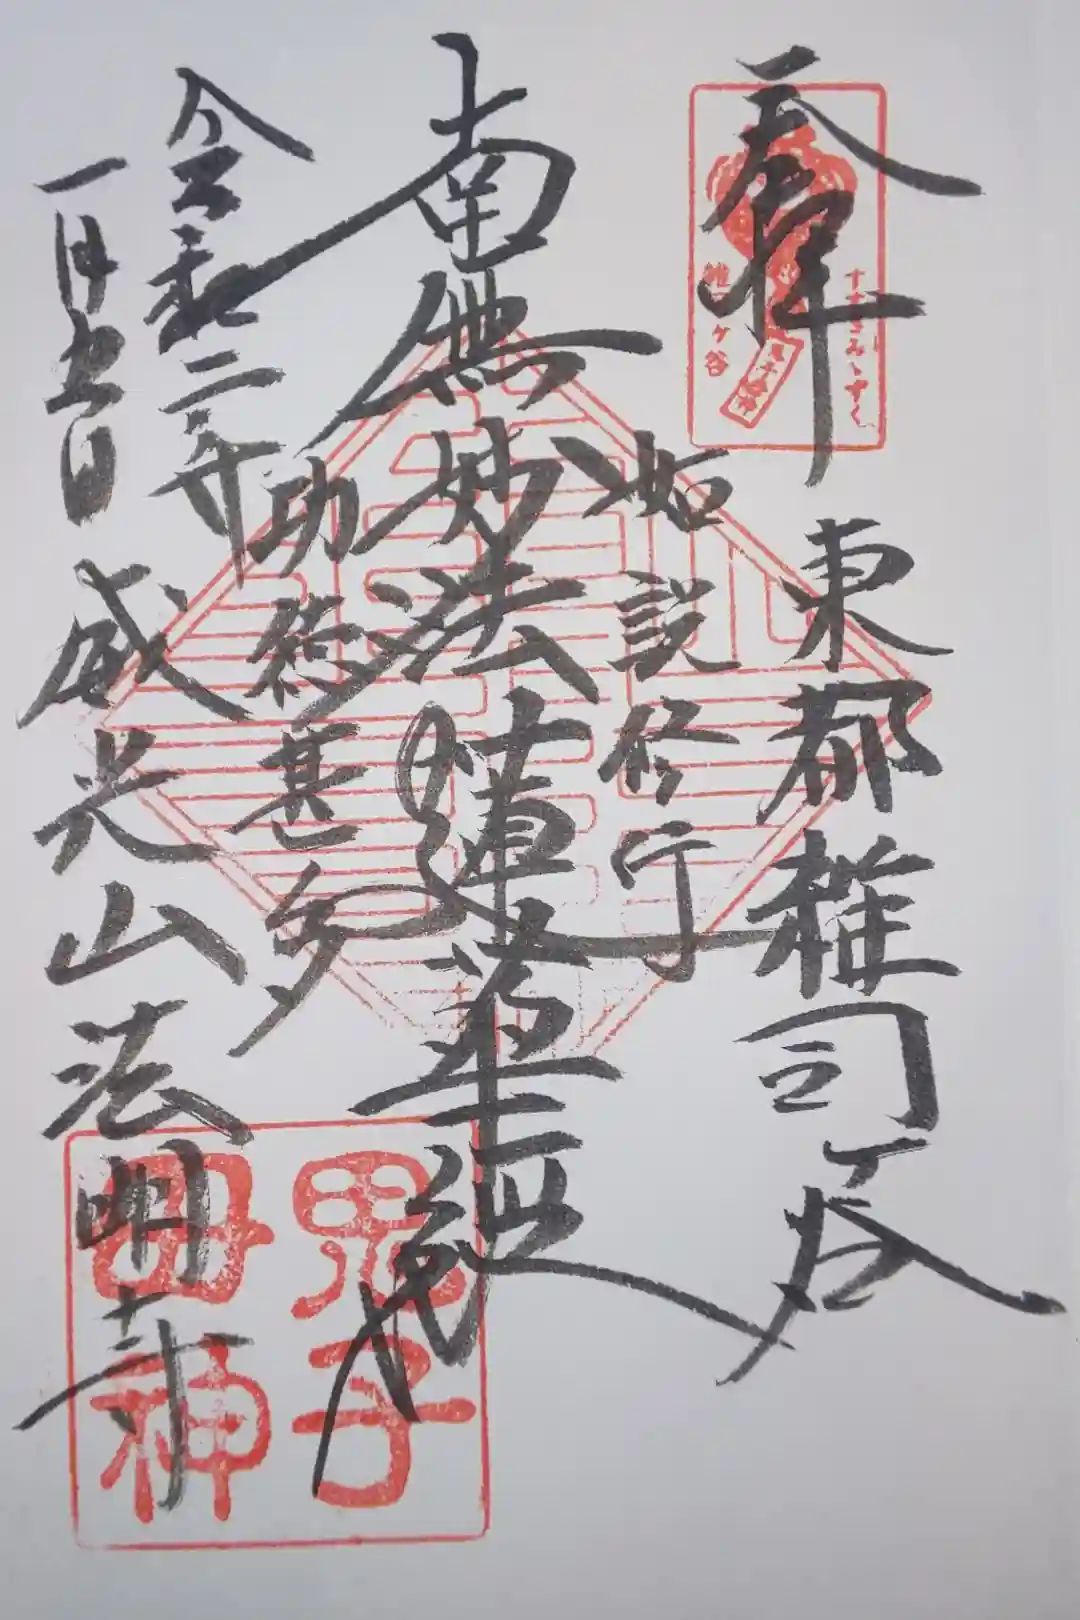 奉拝
東都雑司ヶ谷
如説修行
南無妙法蓮華経
功徳甚多
令和二年
一月五日
威光山法明寺
すすきみゝずく
雑司ヶ谷
鬼子母神
鬼子
母神